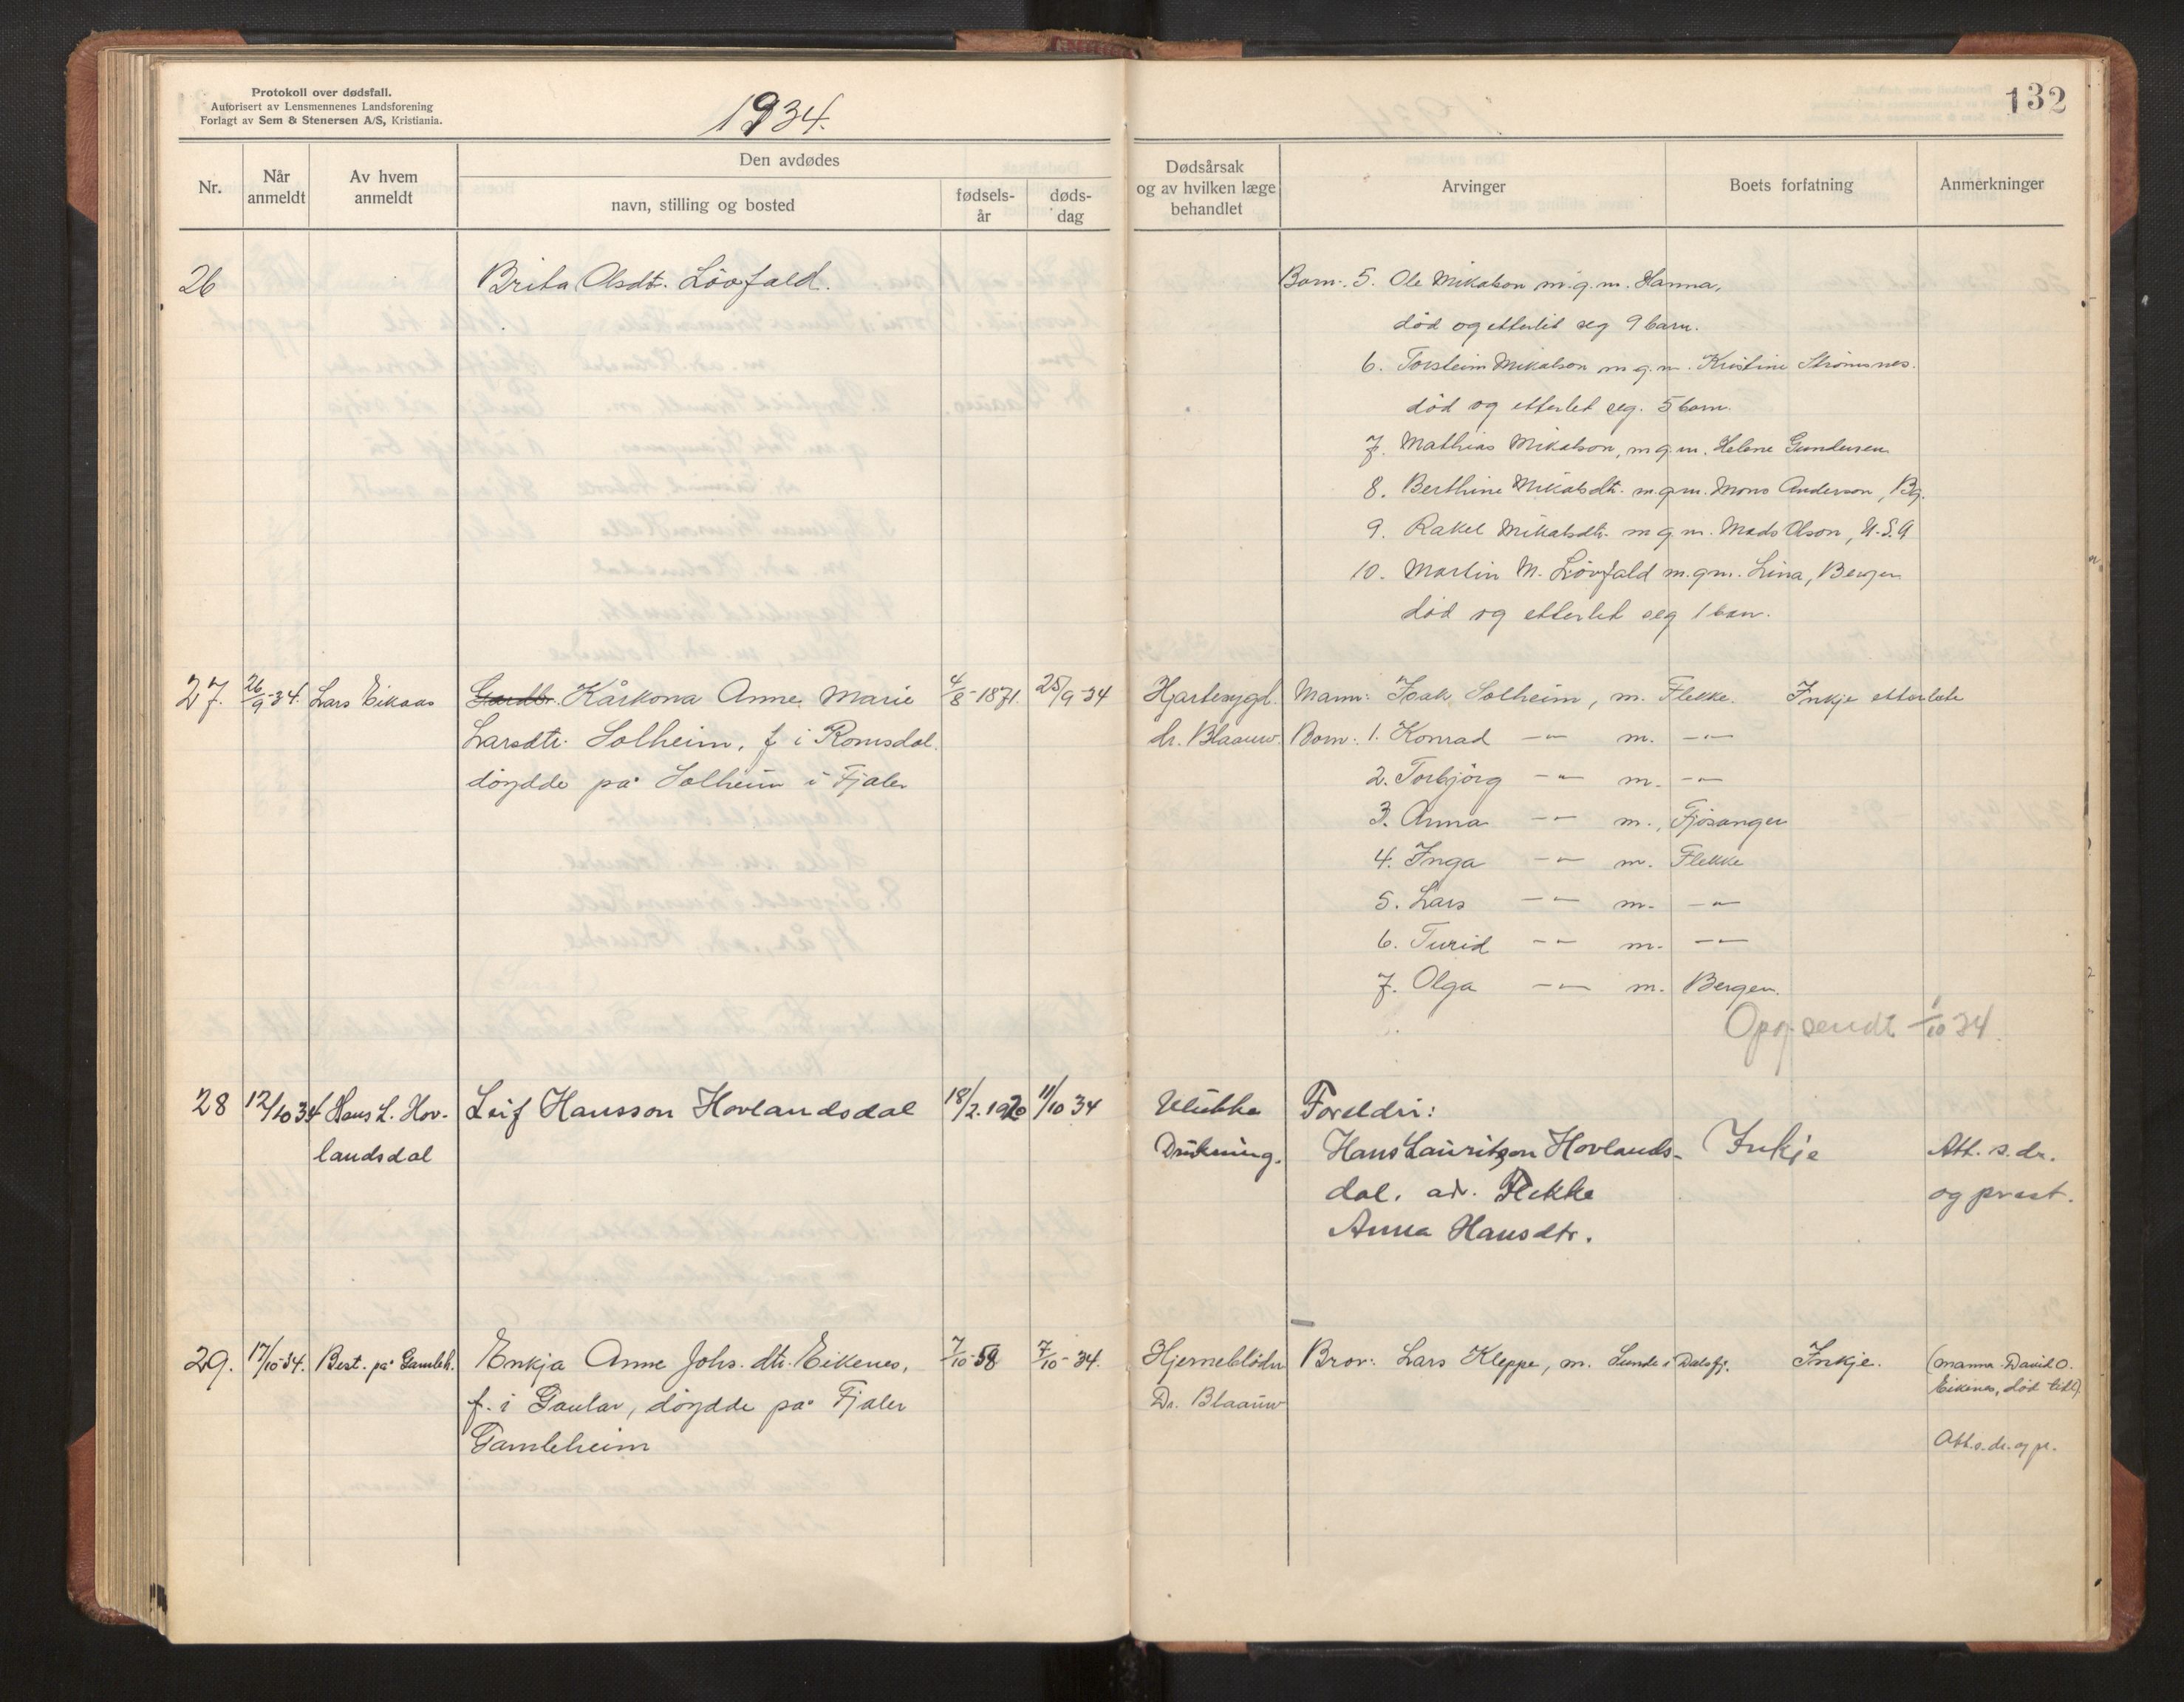 Protokoll over dødsfall.
Autorisert av Lensmennenes Landsforening
Forlagt av Sem & Stenersen A/S, Kristiania.
1934.
132
Nr.
Når anmeldt
Av hvem anmeldt
Den avdødes
navn, stilling og bosted
fødsels-år
døds-dag
Dødsårsak og av hvilken læge behandlet
Arvinger
Boets forfatning
Anmerkninger
26 Brita Olsdt. Lövfald. Born: 5. Ole Mikalson m.g.m. Hanna,
död og etterlet seg 9 barn.
6. Torsteim Mikalson m g. m. Kristine Strömsnes.
död og etterlet seg. 5 born.
7. Mathias Mikalson, m g. m. Helene Gundersen
8. Berthine Mikalsdtr. m.g.m. Mons Anderson, Bg.
9. Rakel Mikalsdtr. m g. m. Mads Olson, U.S.A
10. Martin M. Lövfald m.g.m. Lina, Bergen
död og etterlet seg 1 barn.
27. 26/9-34. Lars Eikaas Gardbr. Kårkona Anne Marie 4/8-1871. 25/9-34 Hartesygd. Mann: Isak Solheim, m. Flekke. Inkje etterlete
Larsdtr. Solheim, f i Romsdal. dr. Blaauw. Born: 1. Konrad -"- m. -"-
döydde på Solheim i Fjaler 2. Torbjörg -"- m. -"-
3. Anna -"- m., Fjösanger
4. Inga -"- m. Flekke
5. Lars -"- m. -"-
6. Turid -"- m. -"-
7. Olga -"- m. Bergen.
Opg. sendt 1/10 34.
28 12/10 34 Hans L. Hov- Leif Hansson Hovlandsdal 18/2.1920 11/10 34 Ulukke Foreldri:
landsdal Drukning. Hans Lauritzon Hovlands- Inkje Att. s. dr.
dal, adr. Flekke og prest.
Anna Hansdtr.
29. 17/10-34. Best. på Gamleh. Enkja Anne Johs. dtr. Eikenes, 7/10-58 7/10-34. Hjerneblödn Bror: Lars Kleppe, m. Sunde i Dalsfj. Inkje. (mannen David O.
f. i Gaular, döydde på Fjaler Dr. Blaauw Eikenes, död tidl.)
Gamleheim Att. s. dr. og pr.